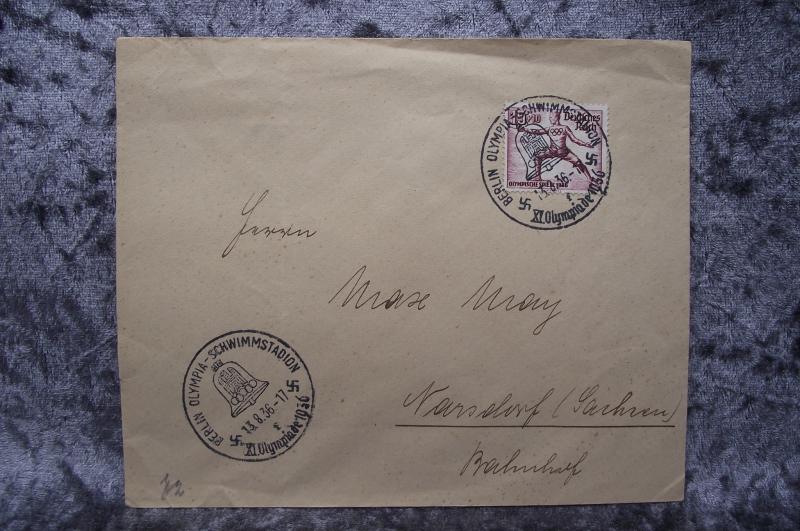 BERLIN OLYMPIA-SCHWIMMSTADION
13.8.36.-17
XI.Olympiade 1936
Deutsches
Reich
OLYMPISCHE SPIELE 1936
Herrn
Max May
Narsdorf (Sachsen)
Bahnhof
BERLIN OLYMPIA-SCHWIMMSTADION
13.8.36.-17
f
XI.Olympiade 1936